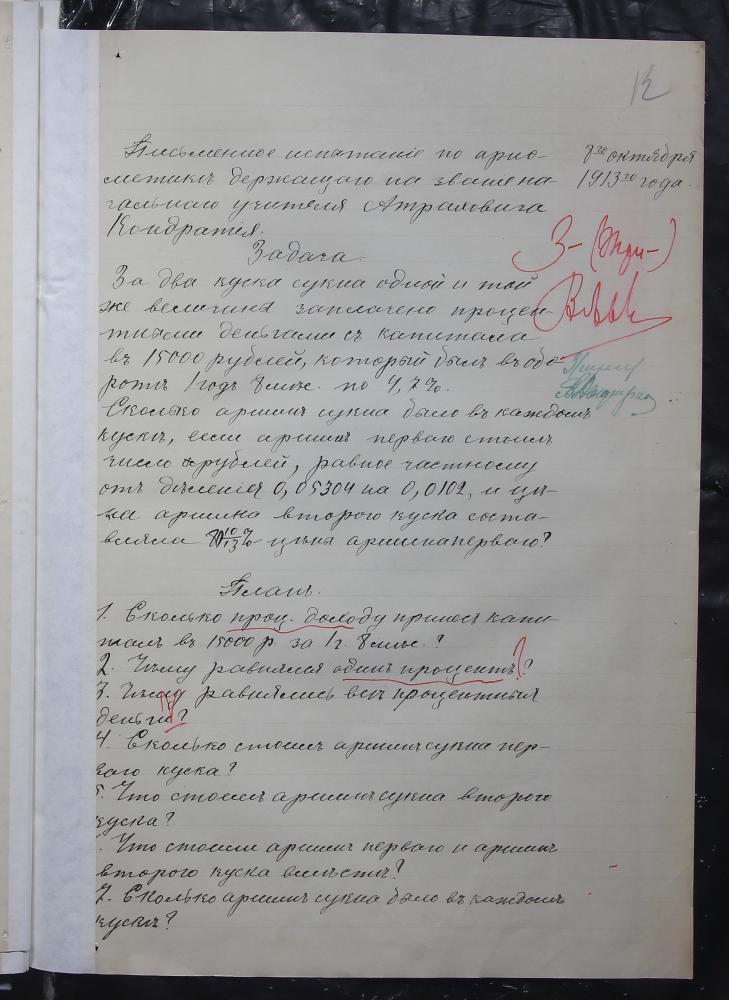 12
Письменное испытаніе по ариѳ-
метикѣ держащаго на званіе на-
чальнаго учителя Атраховича
Кондратія.
7го октября
1913го года.
3- (три-)
Задача.
За два куска сукна одной и той
же величины заплачено процен-
тными деньгами съ капитала
въ 15000 рублей, который былъ въ обо-
ротѣ 1 годъ 8 мѣс. по 4,2%.
Сколько аршинъ сукна было въ каждомъ
кускѣ, если аршинъ перваго стоилъ
число рублей, равное частному
отъ дѣленія 0,05304 на 0,0102, и цѣ-
на аршина второго куска соста-
вляла 10/13 цѣны аршина перваго?
Планъ.
1. Сколько проц. доходу принесъ капи-
талъ въ 15000 р. за 1 г. 8 мѣс.?
2. Чему равнялся одинъ процентъ?
3. Чему равнялись всѣ процентныя
деньги?
4. Сколько стоилъ аршинъ сукна пер-
ваго куска?
5. Что стоилъ аршинъ сукна второго
куска?
Что стоили аршинъ перваго и аршинъ
второго куска вмѣстѣ?
7. Сколько аршинъ сукна было въ каждомъ
кускѣ?